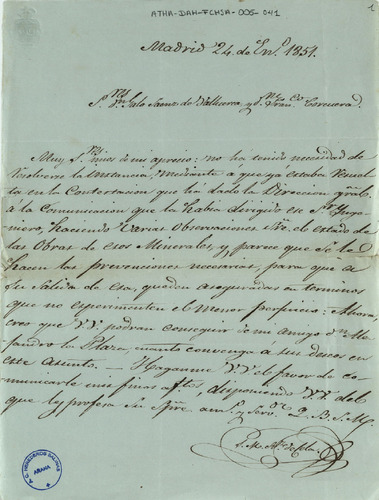 ATHA-DAH-FCHSA-006-041
1
Madrid 24 de En.º 1851.
S.res D.n Sáenz de y D.n Fran.co Corcuera.
Muy S.res mios de mi aprecio: no ha tenido necesidad de
resolverse la instancia, mediante a que ya estaba resuel
ta en la Contestacion que ha dado la Direccion gral.
á la Comunicacion que la habia dirigido ese S.r Inge
niero, haciendo varias Observaciones sre. el estado de
las Obras de esos Minerales, y parece que se la
hacen las prevenciones necesarias, para que á
su salida de esa, queden aseguradas en terminos
que no esperimenten el menor perjuicio: Ahora,
creo que VV. podran conseguir de mi amigo D.n Ale
jandro la Plaza, cuanto convenga á sus deseos en
este asunto. — Haganme VV. el favor de co
municarle mis finas aftos, disponiendo VV. del
que les profesa su spre. am.º y Serv.or Q. B. S. M.
ALAVA